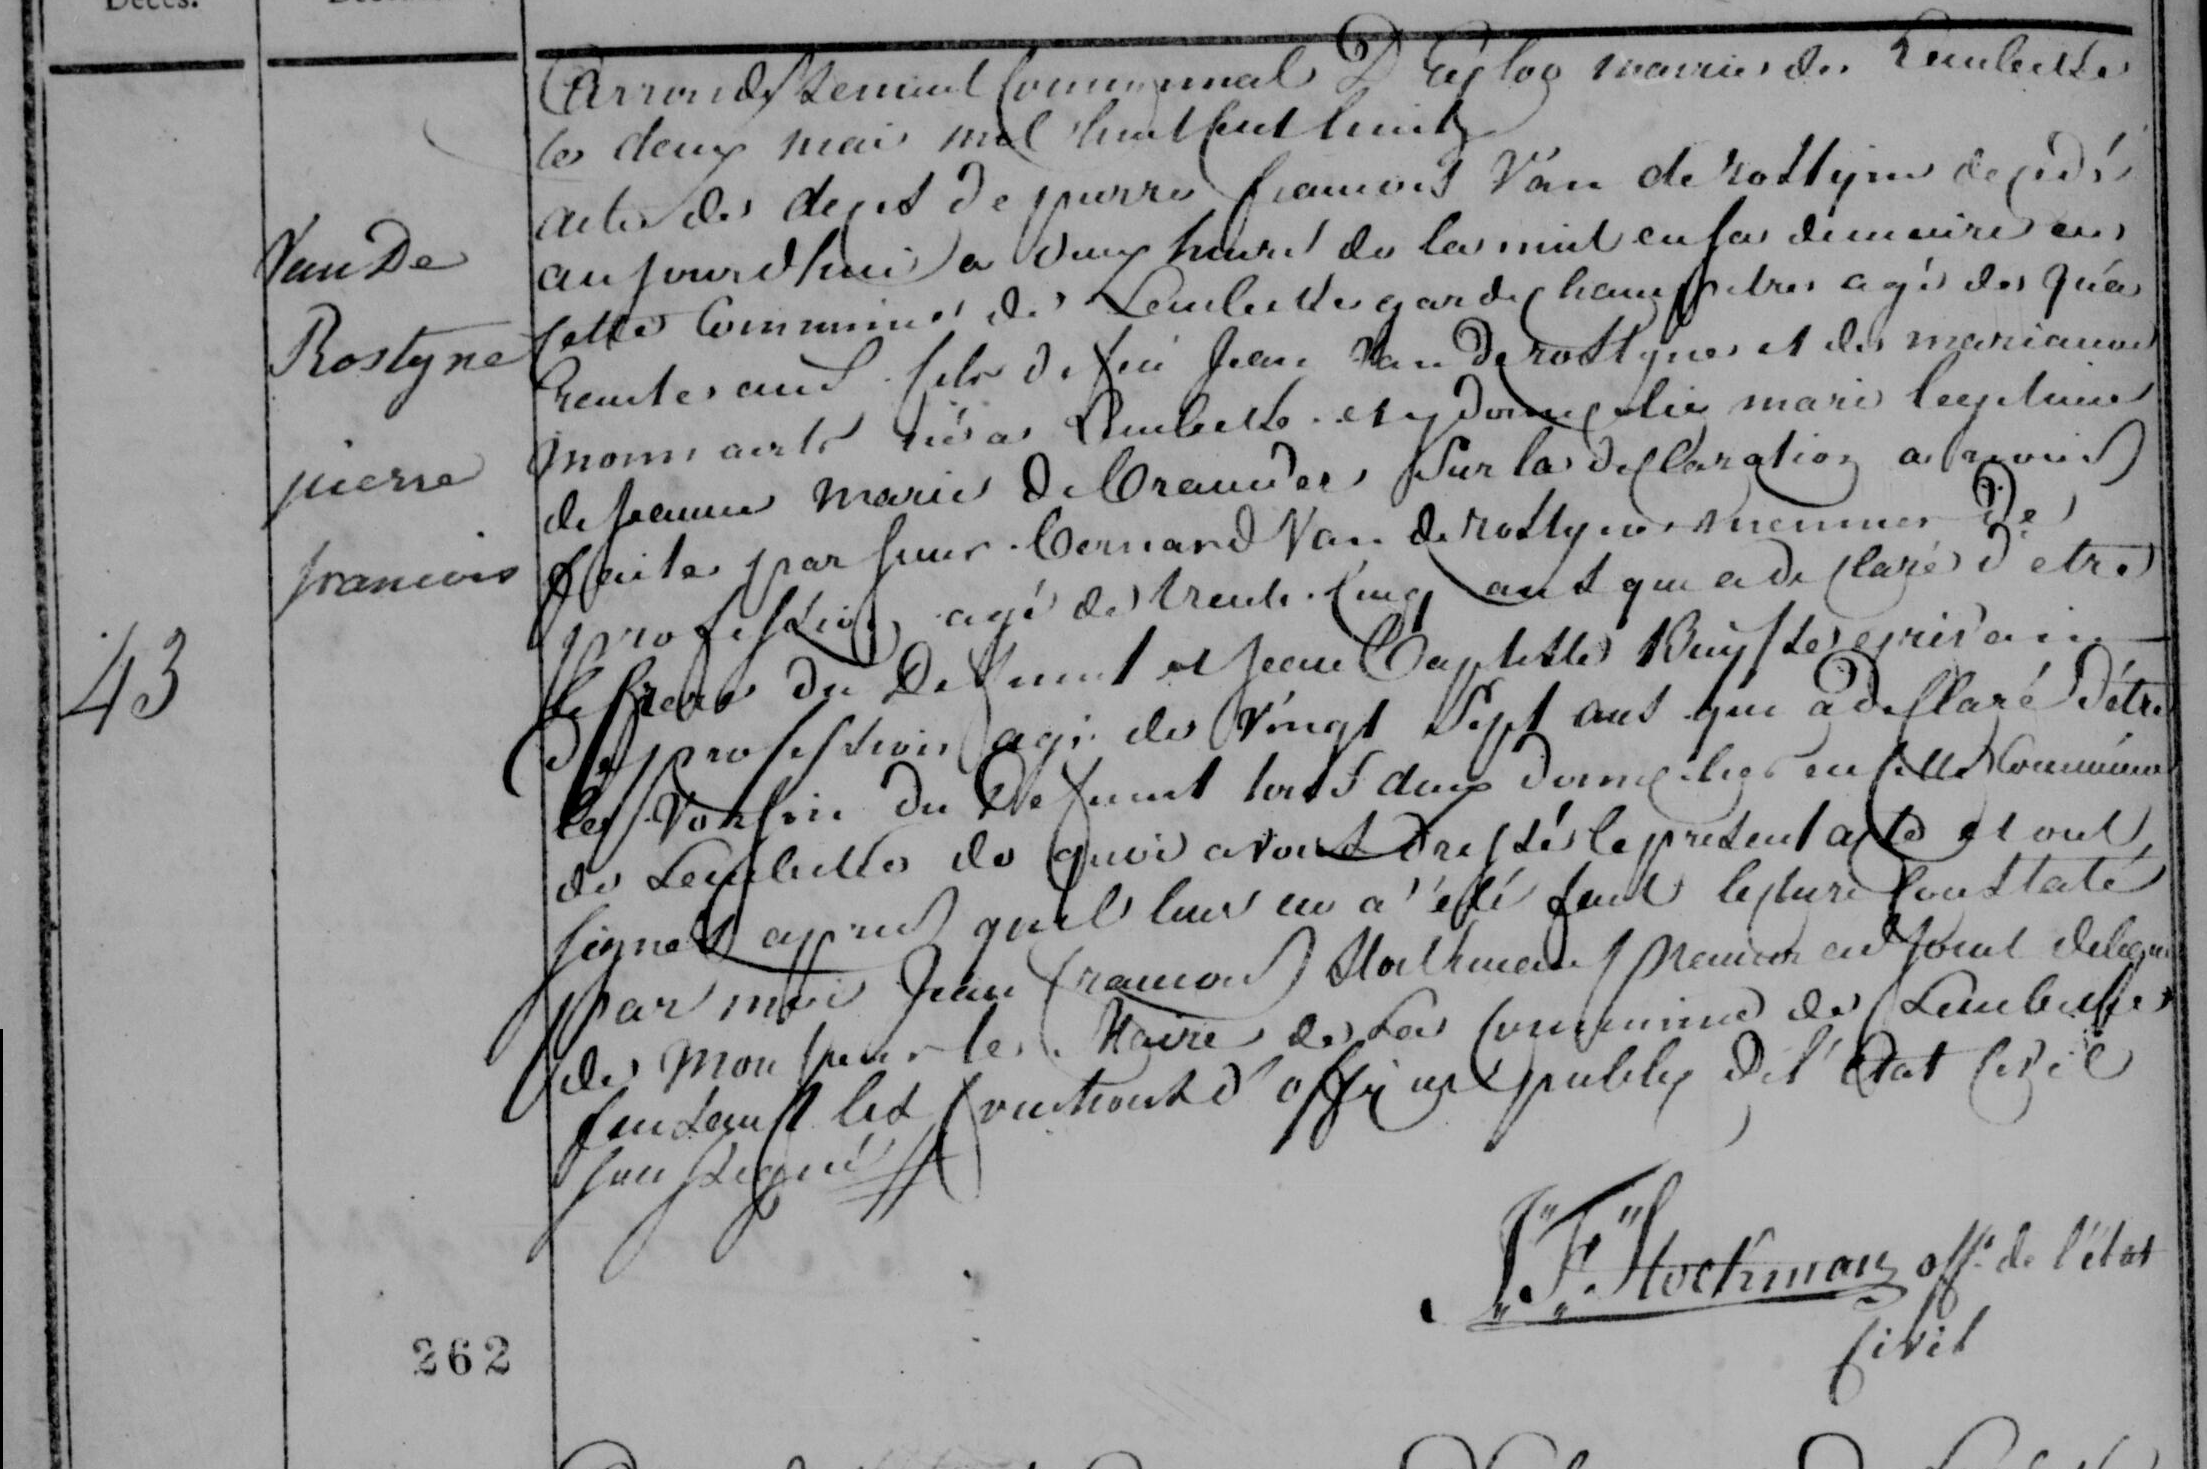 Décès.
Arrondissement Communal D'Eecloo mairie de Lembeke
le deux mai mil huit cent huit
acte de deces de pierre francois Van de rostyne decedé
aujourdhui a deux heures de la nuit en sa demeure en
cette Commune de Lembeke garde champetre agé de qua
rante ans fils de feu Jean Van de rostyne et de marianne
née a Lembeke et y domicilie mari legitime
de jeanne marie De Craene Sur la declaration a nous
faite par sieur bernard Van de rostyne de
profession agé de trente cinq ans qui a declaré d'etre
le frere du Defunt et Jean Baptiste Buysse ecrivain
de profession agé de vingt sept ans qui a declaré d'etre
le voisin du Defunt tous deux domicilies en cette Commune
de Lembeke de quoi avons dressé le present acte et ont
signés apres quil leur en a été fait lecture Constaté
par moi Jean francois Stockman premier adjoint delegué
de Monsieur le Maire de La Commune de Lembeke
faisant les fonctions d'officier public de l'état civil
soussigné
Van De
Rostyne
pierre
francois
43
J.F. Stockman off. de l'état
civil
262